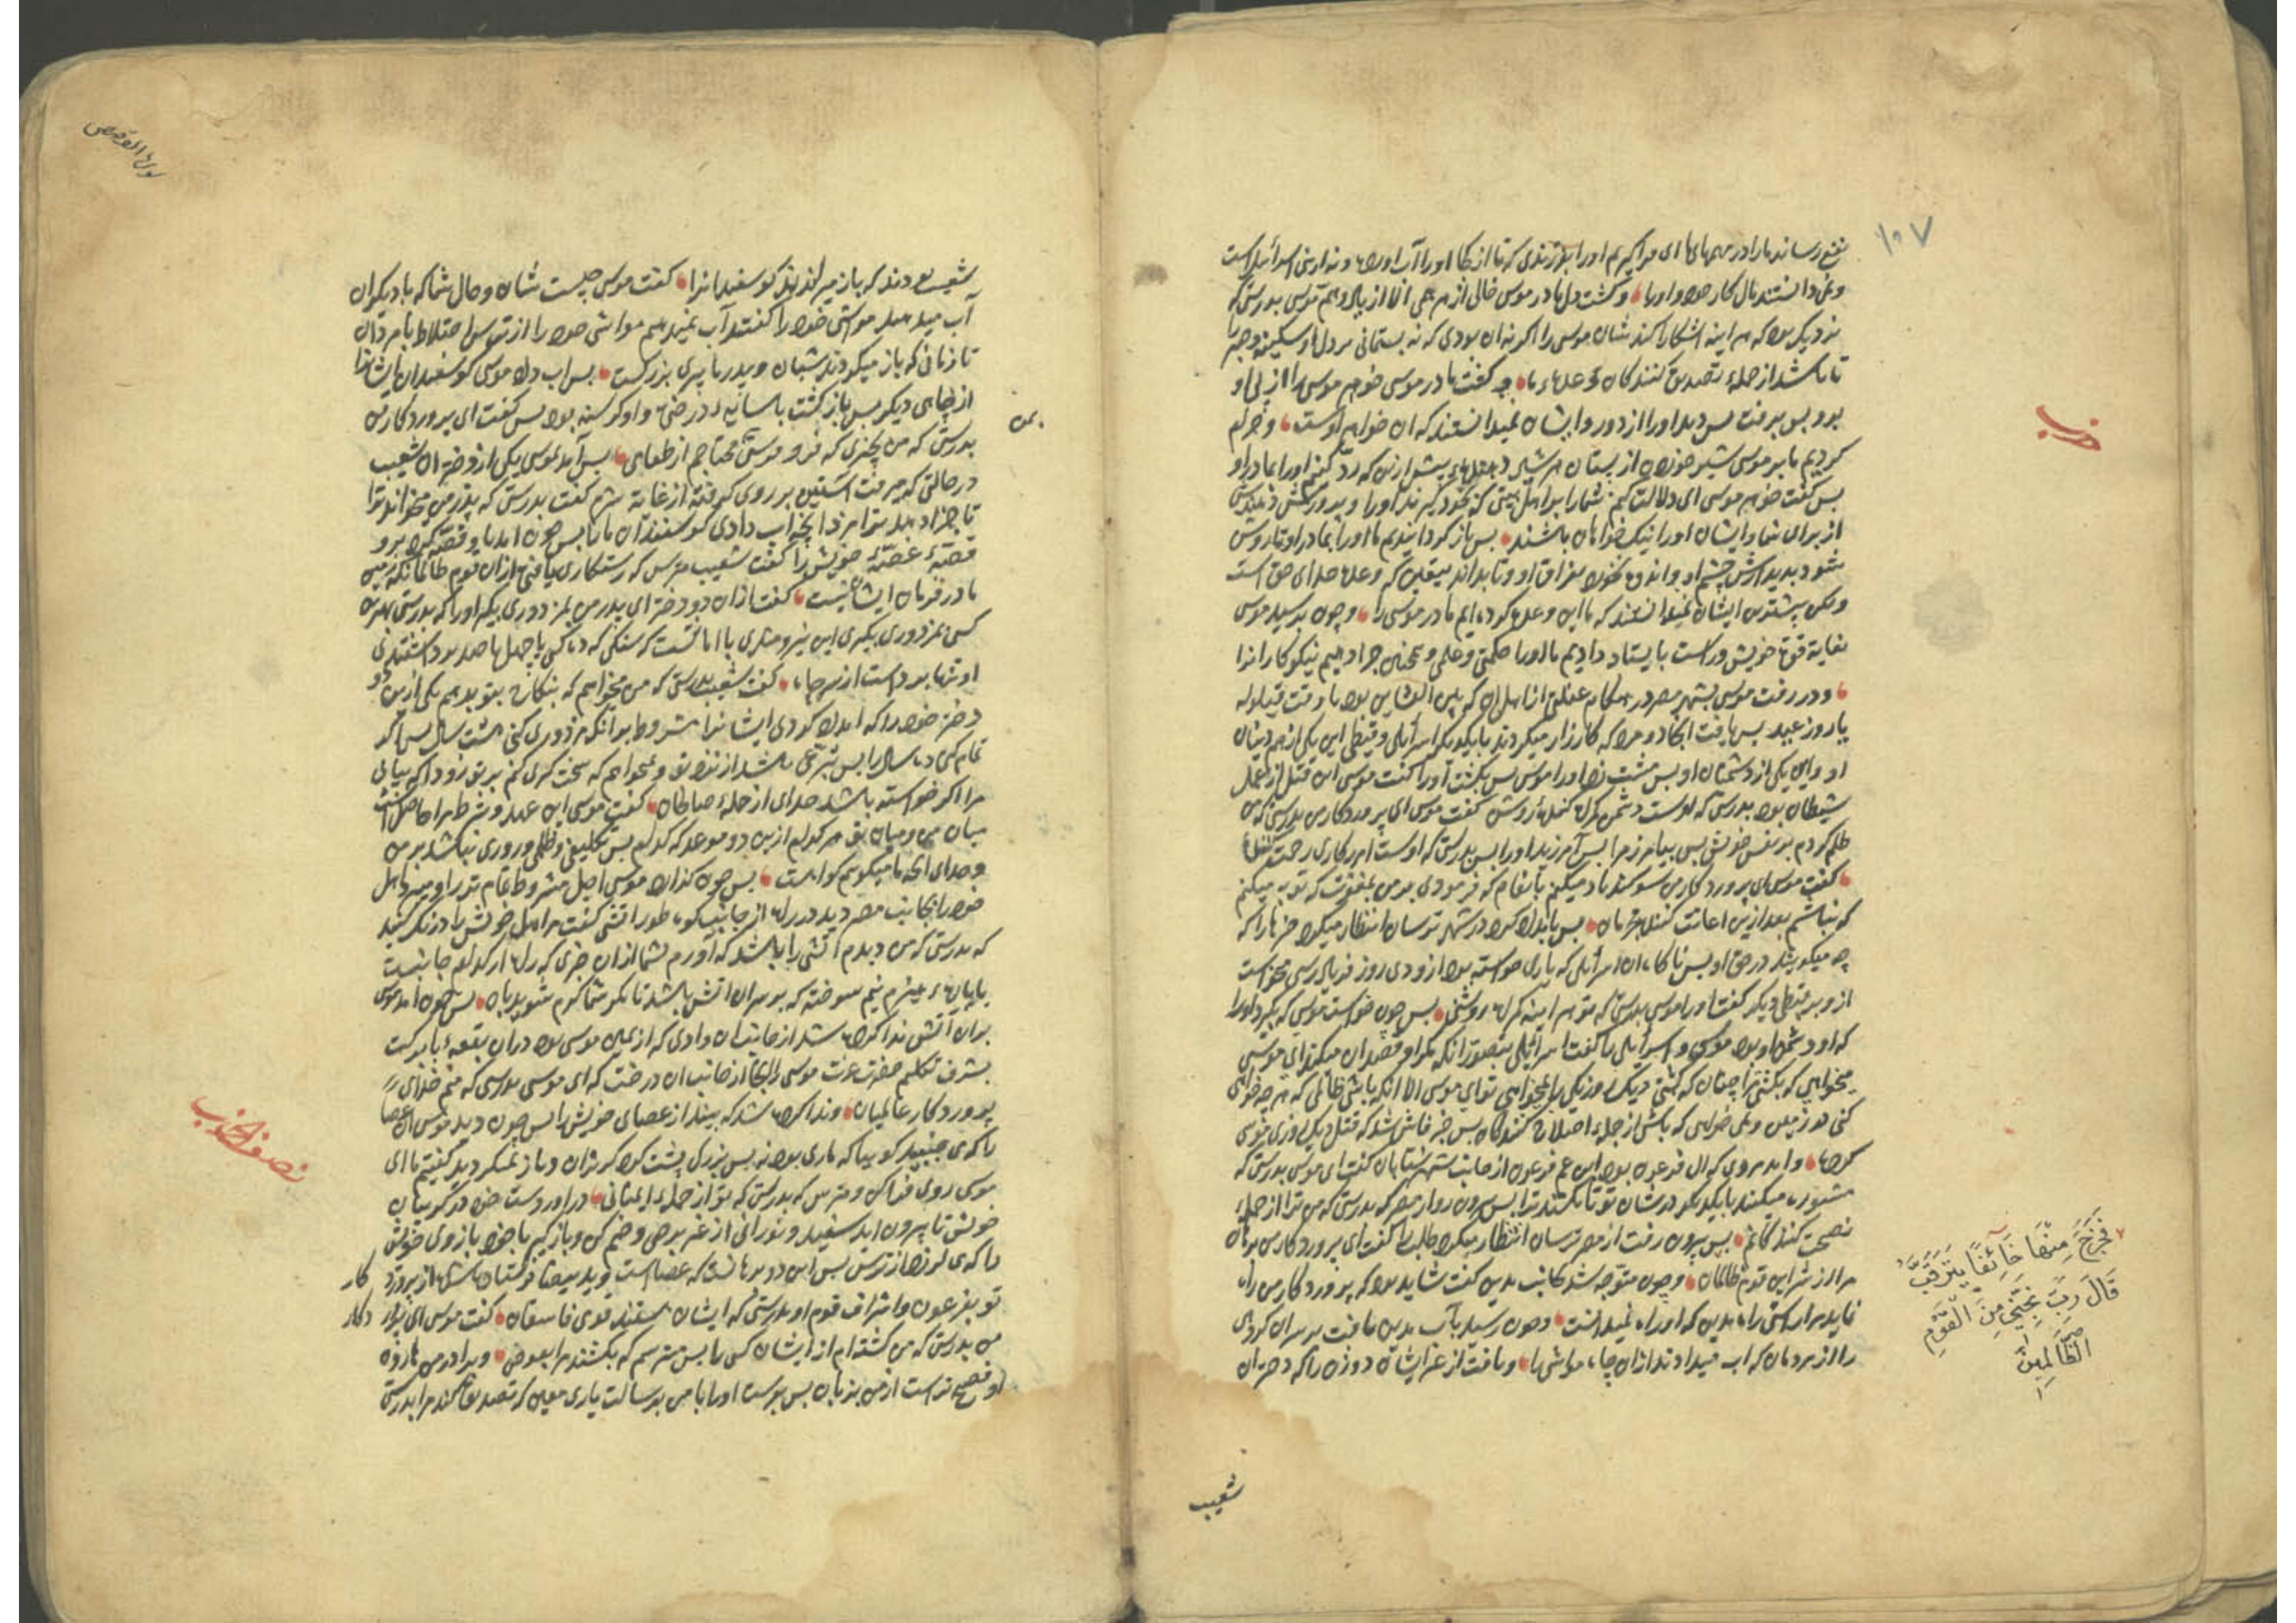 ١٠٧
نفع رساند ما را در مهمهای ما فرا گیریم او را بفرزندی که تا از کجا او را آب آورده و نه از بنی اسرائیل است
و نمی دانستند مآل کار خود و او را و گشت دل مادر موسی خالی از هر همی الا از یاد و هم موسی بدرستی که
نزدیک بود که هر آینه آشکارا کند شان موسی را اگر نه آن بودی که نه بستمانی بر دل او سکینه و صبر را
تا باشد از جمله تصدیق کنندگان وعدهٔ ما و گفت مادر موسی خواهر موسی را از پی او
برو پس برفت پس دید او را از دور و ایشان نمیدانستند که آن خواهر اوست و حرام
کردیم ما بر موسی شیر خوردن از پستان هر شیر پیش ازین که رد کنیم او را بمادر او
پس گفت خواهر موسی ای دلالت کنم شما را بر اهل بیتی که بخود گیرند او را و پرورش دهندش
از برای شما و ایشان او را نیک خواهان باشند پس باز گردانیدیم ما او را بمادر او تا روشن
شود بدیدارش چشم او و اندوه نخورد بفراق او و تا بداند بیقین که وعدهٔ خدای حق است
ولیکن بیشترین ایشان نمیدانستند که ما این وعده کرده ایم مادر موسی را و چون برسید موسی
بغایة قوة خویش و راست بایستاد دادیم ما او را حکمتی و علمی و همچنین جزا دهیم نیکوکارانرا
و در رفت موسی بشهر مصر در هنگام غفلتی از اهل آن که بین العشاءین بود یا وقت قیلوله
یا روز عید پس یافت آنجا دو مرد که کارزار میکردند با یکدیگر اسرائیلی و قبطی این یکی از هم دینان
او و این یکی از دشمنان او پس مشت زد او را موسی پس بکشت او را گفت موسی این قتل از عمل
شیطان بود بدرستی که اوست دشمن گمراه کنندهٔ روشن گفت موسی ای پروردگار من بدرستی که من
ظلم کردم بر نفس خویش پس بیامرز مرا پس آمرزید او را پس بدرستی که اوست آمرزگاری رحمت کننده
گفت موسی ای پروردگار من سوگند یاد میکنم بانعام که فرمودی بر من بمغفرت که توبه میکنم
که نباشم بعد ازین اعانت کننده مجرمان پس بامداد کرد در شهر ترسان انتظار میکرد خبرها را که
چه میگویند در حق او پس ناگاه آن اسرائیلی که یاری خواسته بود ازو دی روز فریادرسی میخواست
ازو بر قبطی دیگر گفت او را موسی بدرستی که تو هر آینه گمراه روشنی پس چون خواست موسی که بگیرد او را
که او دشمن او بود موسی و اسرائیلی را گفت اسرائیلی بتصور آنکه مگر او قصد آن میکند ای موسی
میخواهی که بکشی مرا چنان که کشتی دیک روز یکی را نمیخواهی تو ای موسی الا آنکه باشی ظالمی که هر چه خواهی
کنی در زمین و نمی خواهی که باشی از جملهٔ اصلاح کنندگان پس خبر فاش شد که قتل دیک روزی موسی
کرده و آمد مردی که آل فرعون بود ابن عم فرعون از جانب شهر شتابان گفت ای موسی بدرستی که
مشوره میکنند با یکدیگر در شان تو تا بکشند ترا پس بیرون رو از مصر که بدرستی که من ترا از جملهٔ
نصیحت کنندگانم پس بیرون رفت از مصر ترسان انتظار میکرد طلب را گفت ای پروردگار من برهان
مرا از شر این قوم ظالمان و چون متوجه شد بجانب مدین گفت شاید بود که پروردگار من راه
نماید مرا براستی راه مدین که او راه نمیدانست و چون رسید بآب مدین یافت بر سر آن گروهی
را از مردمان که آب میدادند ازان چاه مواشی را و یافت از غیر ایشان دو زن را که دختران
حزب
فَخَرَجَ مِنْهَا خَائِفًا يَتَرَقَّبُ
قَالَ رَبِّ نَجِّنِي مِنَ الْقَوْمِ
الظَّالِمِينَ
شعیب
سورة القصص
شعیب بودند که باز میراندند گوسفندانرا گفت موسی چیست شان و حال شما که با دیگران
آب میدهید مواشی خود را گفتند آب نمیدهیم مواشی خود را از ترس اختلاط با مردان
تا زمانی که باز میگردند شبانان و پدر ما پیری بزرگست پس آب داد موسی گوسفندان ایشانرا
از چاهی دیگر پس باز گشت با سایهٔ درختی و او گرسنه بود پس گفت ای پروردگار من
بدرستی که من بچیزی که فرو فرستی محتاجم از طعامی پس آمد بموسی یکی از دختران شعیب
در حالتی که میرفت آستین بر روی گرفته از غایة شرم گفت بدرستی که پدر من میخواند ترا
تا جزا دهد ترا مزد آنچه آب دادی گوسفندان ما را پس چون آمد با و قصه کرد برو
قصهٔ غصهٔ خویش را گفت شعیب مترس که رستگاری یافتی ازان قوم ظالمان که زمین
ما در فرمان ایشان نیست گفت ازان دو دختر ای پدر من بمزدوری بگیر او را که بدرستی بهترین
کسی بمزدوری بگیری این نیرومندی با امانتست که سنگی که ده کس یا چهل یا صد بر داشتندی
او تنها برداشت از سر چاه گفت شعیب بدرستی که من میخواهم که بنکاح بتو بدهم یکی ازین دو
دختر خود را که امداد کردی ایشانرا مشروط بر آنکه مزدوری کنی هشت سال پس اگر
تمام کنی ده سال را پس تبرعی باشد از نزد تو و نمیخواهم که سخت گری کنم بر تو زود است که بیابی
مرا اگر خواسته باشد خدای از جملهٔ صالحان گفت موسی این عهد و شرط مرا حاصل است
میان من و میان تو هر کدام ازین دو موعد که گذرد پس تکلیفی و ظلمی و زوری نباشد بر من
و خدای آنچه ما میگوییم گواهست پس چون گذراند موسی اجل مشروط تمام تر را و میبرد اهل
خود را بجانب مصر دید در راه از جانب کوه طور آتشی گفت مر اهل خویش را درنگ کنید
که بدرستی که من دیدم آتشی را باشد که آورم بشما ازان خبری که راه از کدام جانبست
یا پارهٔ هیزم نیم سوخته که بر سر آن آتش باشد تا مگر شما گرم شوید بآن پس چون آمد موسی
بران آتش ندا کرده شد از جانب آن وادی که از یمین موسی بود دران بقعهٔ با برکت
بشرف تکلیم حضرت عزت موسی را آنجا از جانب آن درخت که ای موسی بدرستی که منم خدای
پروردگار عالمیان و ندا کرده شد که بینداز عصای خویش را پس چون دید موسی آن عصا
را که می جنبید گویا که ماری بود نه بس بزرگ پشت کرد گریزان و باز نمیگردید گفتیم ما ای
موسی روی فرا کن و مترس که بدرستی که تو از جملهٔ ایمنانی در آور دست خود در گریبان
خویش تا بیرون آید سفید و نورانی از غیر برصی و ضم کن و باز گیر با خود بازوی خویش
را که می لرزد از ترس پس این دو برهانست که عصاست و ید بیضا فرستاده شده از پروردگار
تو بفرعون و اشراف قوم او بدرستی که ایشان هستند قومی فاسقان گفت موسی ای پروردگار
من بدرستی که من کشته ام از ایشان کسی را پس میترسم که بکشند مرا بعوض و برادر من هارون
او فصیح تر است از من بزبان پس بفرست او را با من برسالت یاری معین که تصدیق کند مرا بدرستی
نصف الحزب